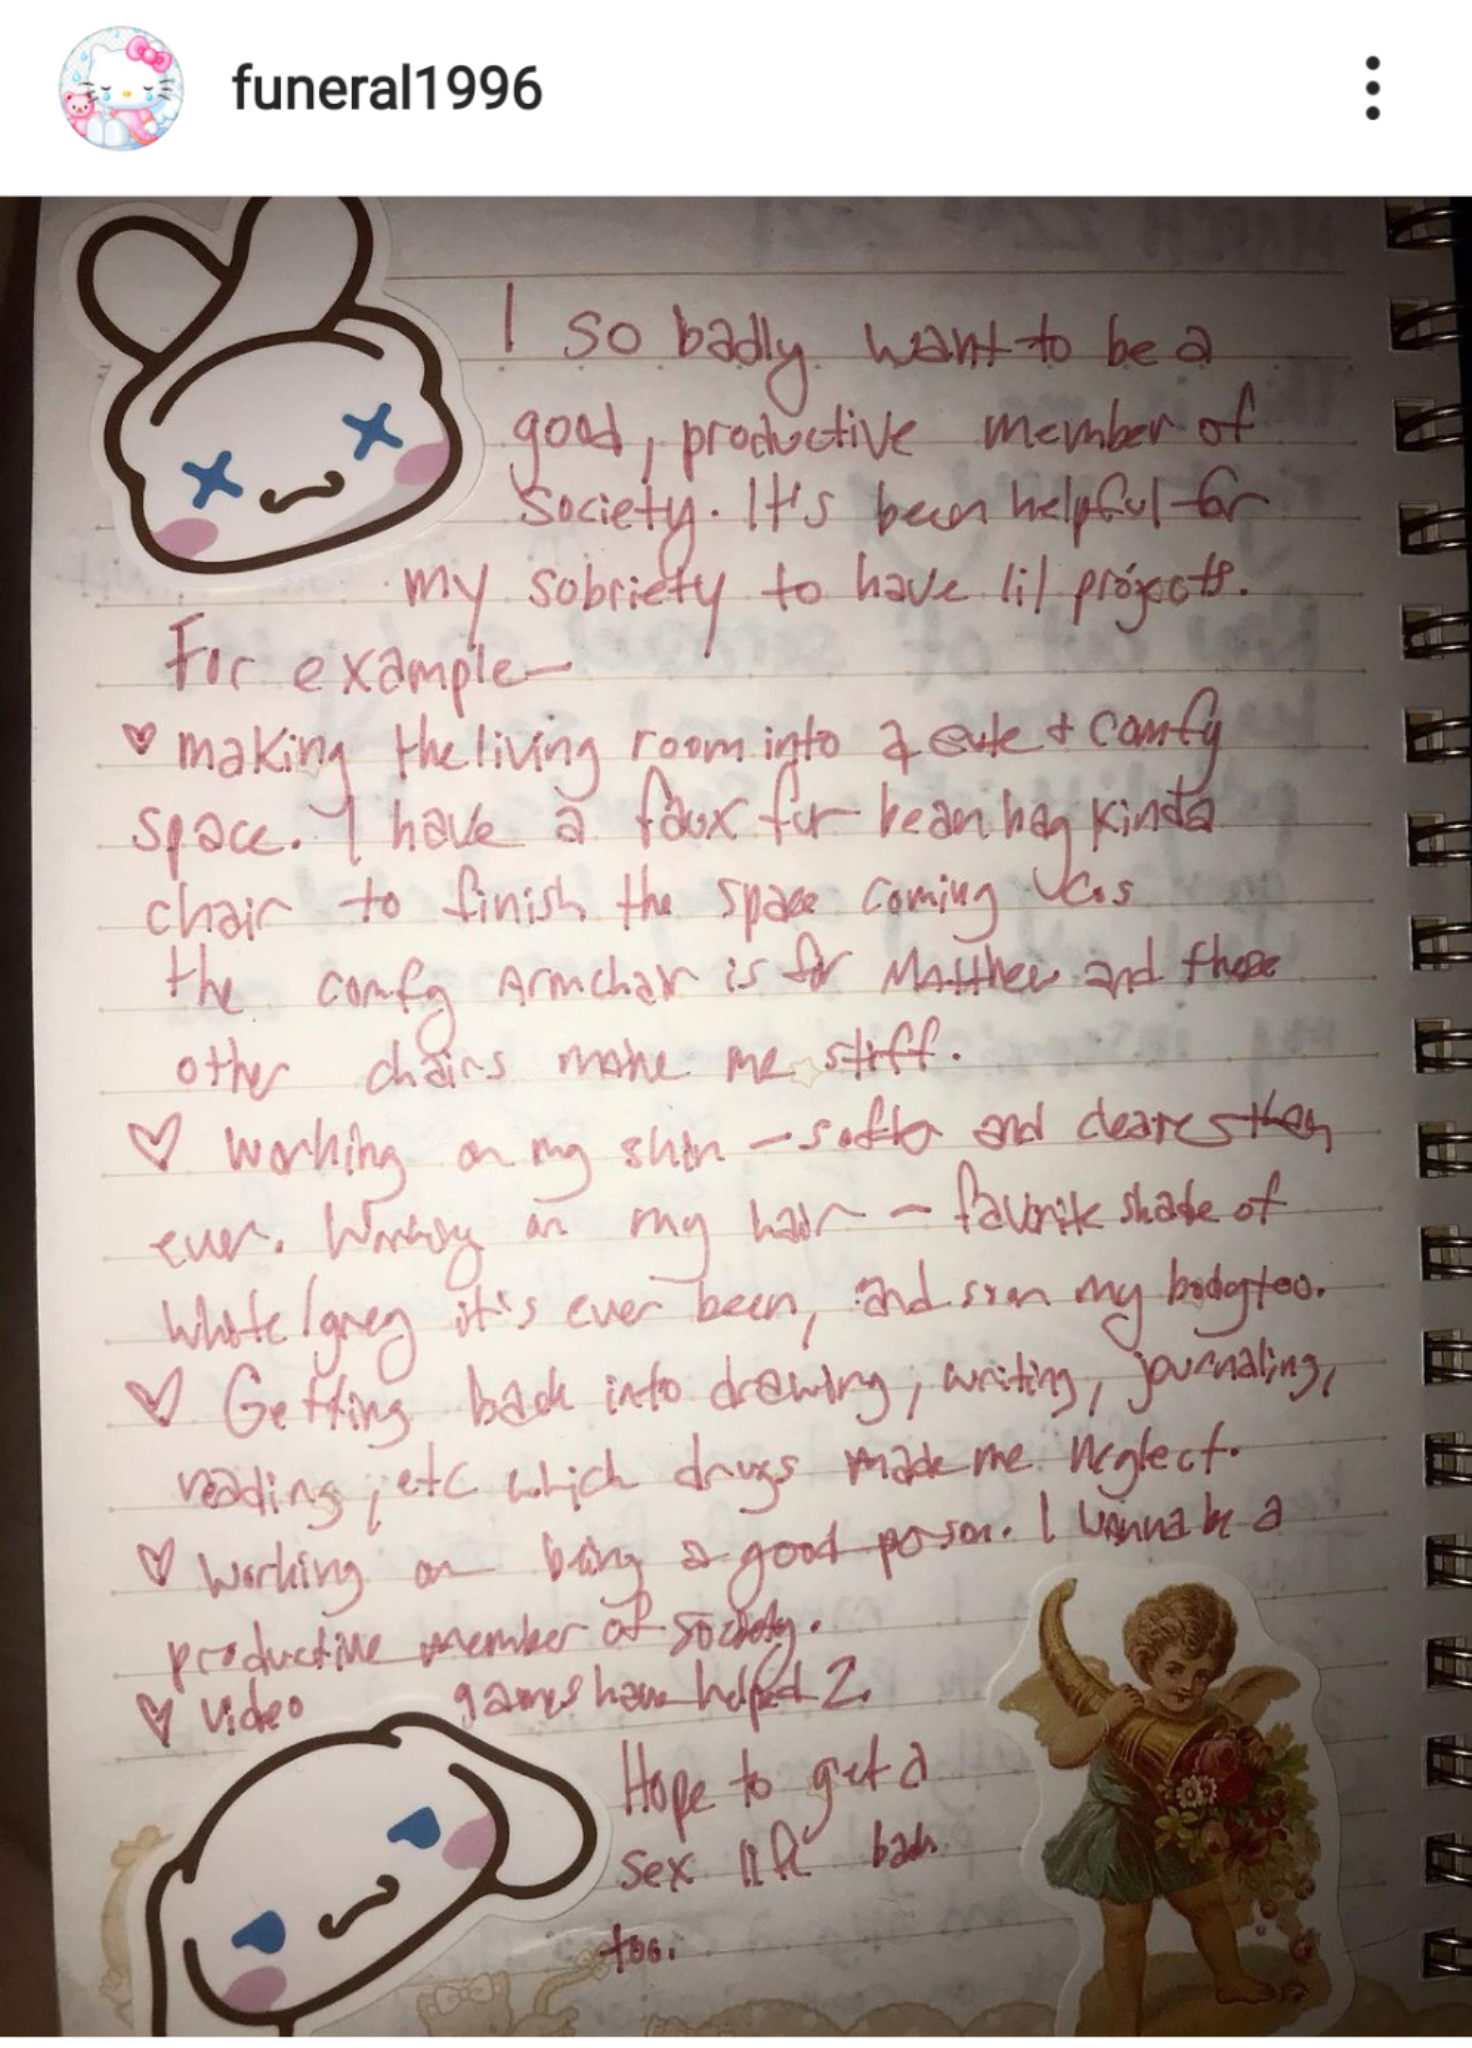 funeral1996
I so badly want to be a
good, productive member of
society. It's been helpful for
my sobriety to have lil projects.
For example—
♡ making the living room into a cute + comfy
space. I have a faux fur bean bag kinda
chair to finish the space coming
the comfy armchair is for Matthew and these
other chairs make me stiff.
♡ Working on my skin — softer and clearer then
ever. Working on my hair — favorite shade of
white/grey it's ever been, and soon my body too.
♡ Getting back into drawing, writing, journaling,
reading, etc which drugs made me neglect.
♡ Working on being a good person. I wanna be a
productive member of society.
♡ Video games have helped 2.
Hope to get a
sex life back
too.